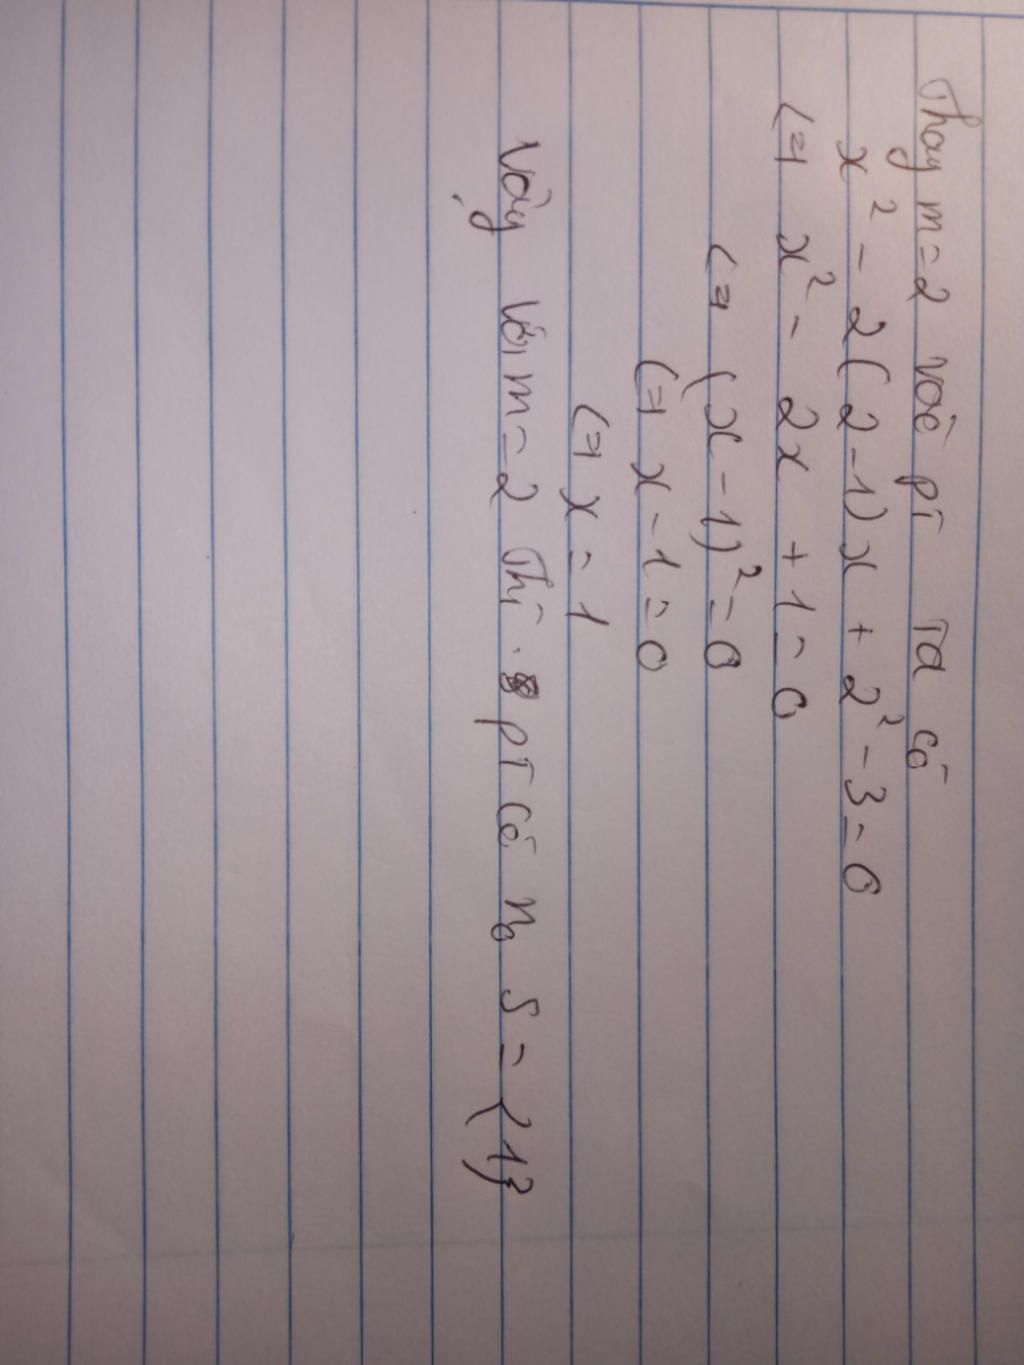 Thay m=2 vào pt ta có
x² - 2(2-1)x + 2² - 3 = 0
(=) x² - 2x + 1 = 0
(=) (x - 1)² = 0
(=) x - 1 = 0
(=) x = 1
Vậy với m=2 thì pt có no S = {1}